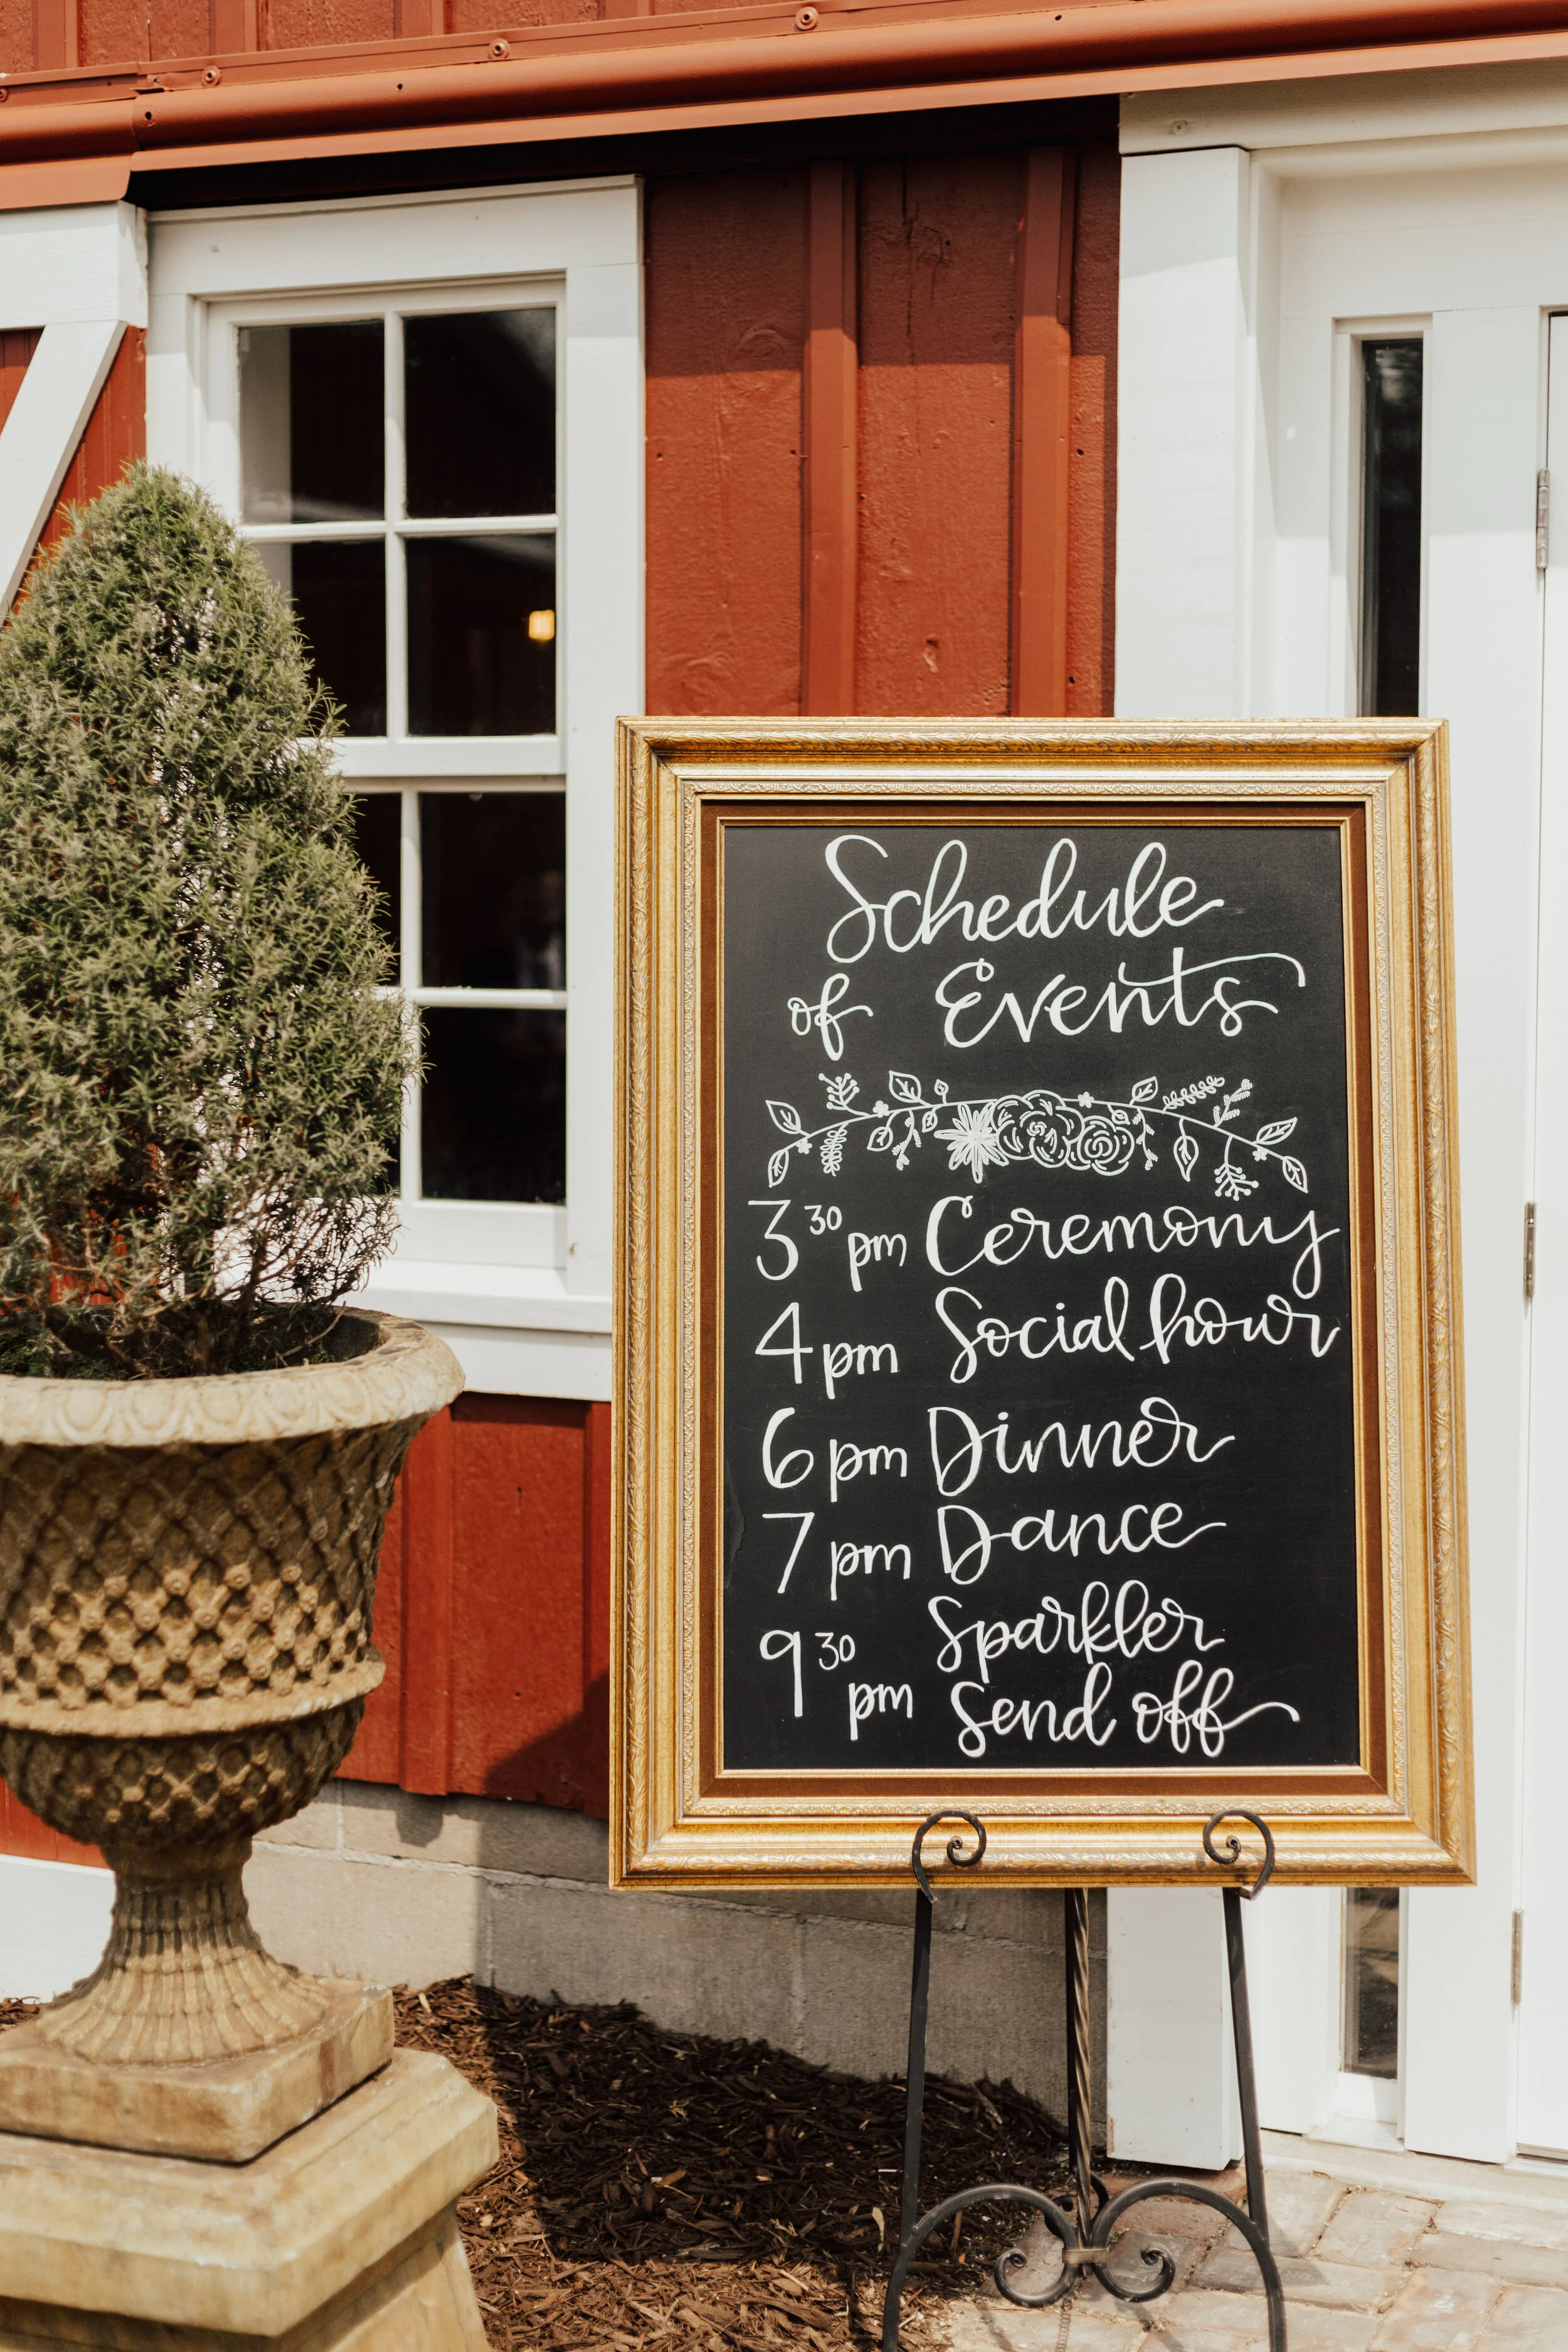 Schedule
of Events
3 30 pm Ceremony
4 pm Social hour
6 pm Dinner
7 pm Dance
9 30 pm Sparkler
Send off